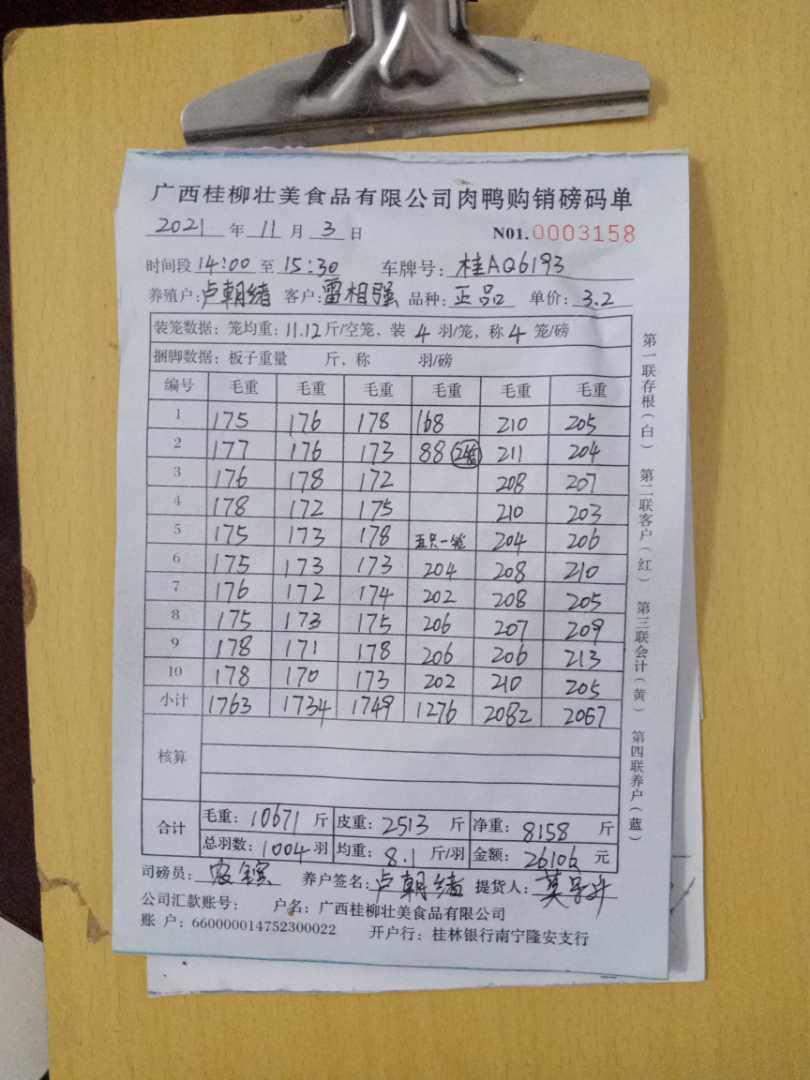 广西桂柳壮美食品有限公司肉鸭购销磅码单
2021 年 11 月 3 日 N01.0003158
时间段 14:00 至 15:30 车牌号: 桂AQ6193
养殖户: 卢朝绪 客户: 雷相强 品种: 正品 单价: 3.2
装笼数据: 笼均重: 11.12 斤/空笼, 装 4 羽/笼, 称 4 笼/磅
捆脚数据: 板子重量 斤, 称 羽/磅
编号 毛重 毛重 毛重 毛重 毛重 毛重
1 175 176 178 168 210 205
2 177 176 173 88 211 204
3 176 178 172 208 207
4 178 172 175 210 203
5 175 173 178 五只一笼 204 206
6 175 173 173 204 208 210
7 176 172 174 202 208 205
8 175 173 175 206 207 209
9 178 171 178 206 206 213
10 178 170 173 202 210 205
小计 1763 1734 1749 1276 2082 2067
核算
合计
毛重: 10671 斤 皮重: 2513 斤 净重: 8158 斤
总羽数: 1004 羽 均重: 8.1 斤/羽 金额: 26106 元
司磅员: 养户签名: 卢朝绪 提货人:
公司汇款账号: 户名: 广西桂柳壮美食品有限公司
账 户: 660000014752300022 开户行: 桂林银行南宁隆安支行
第一联存根(白) 第二联客户(红) 第三联会计(黄) 第四联养户(蓝)